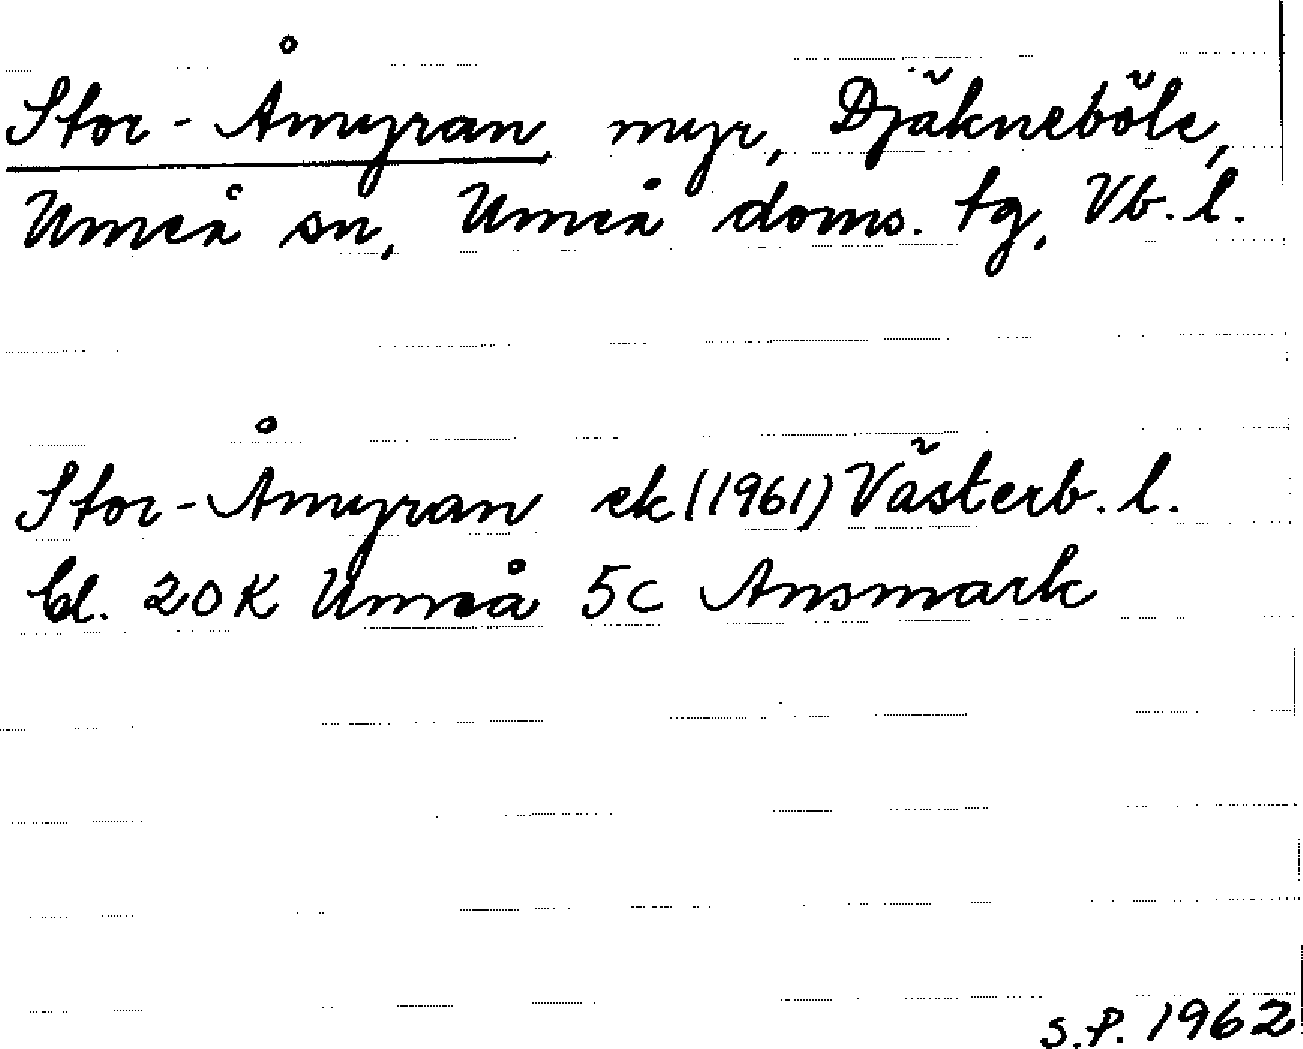 Stor-Åmyran, myr, Djäkneböle,
Umeå sn, Umeå doms. tg, Vb. l.
Stor-Åmyran ek (1961) Västerb. l.
bl. 20K Umeå 5c Ansmark
S.P. 1962